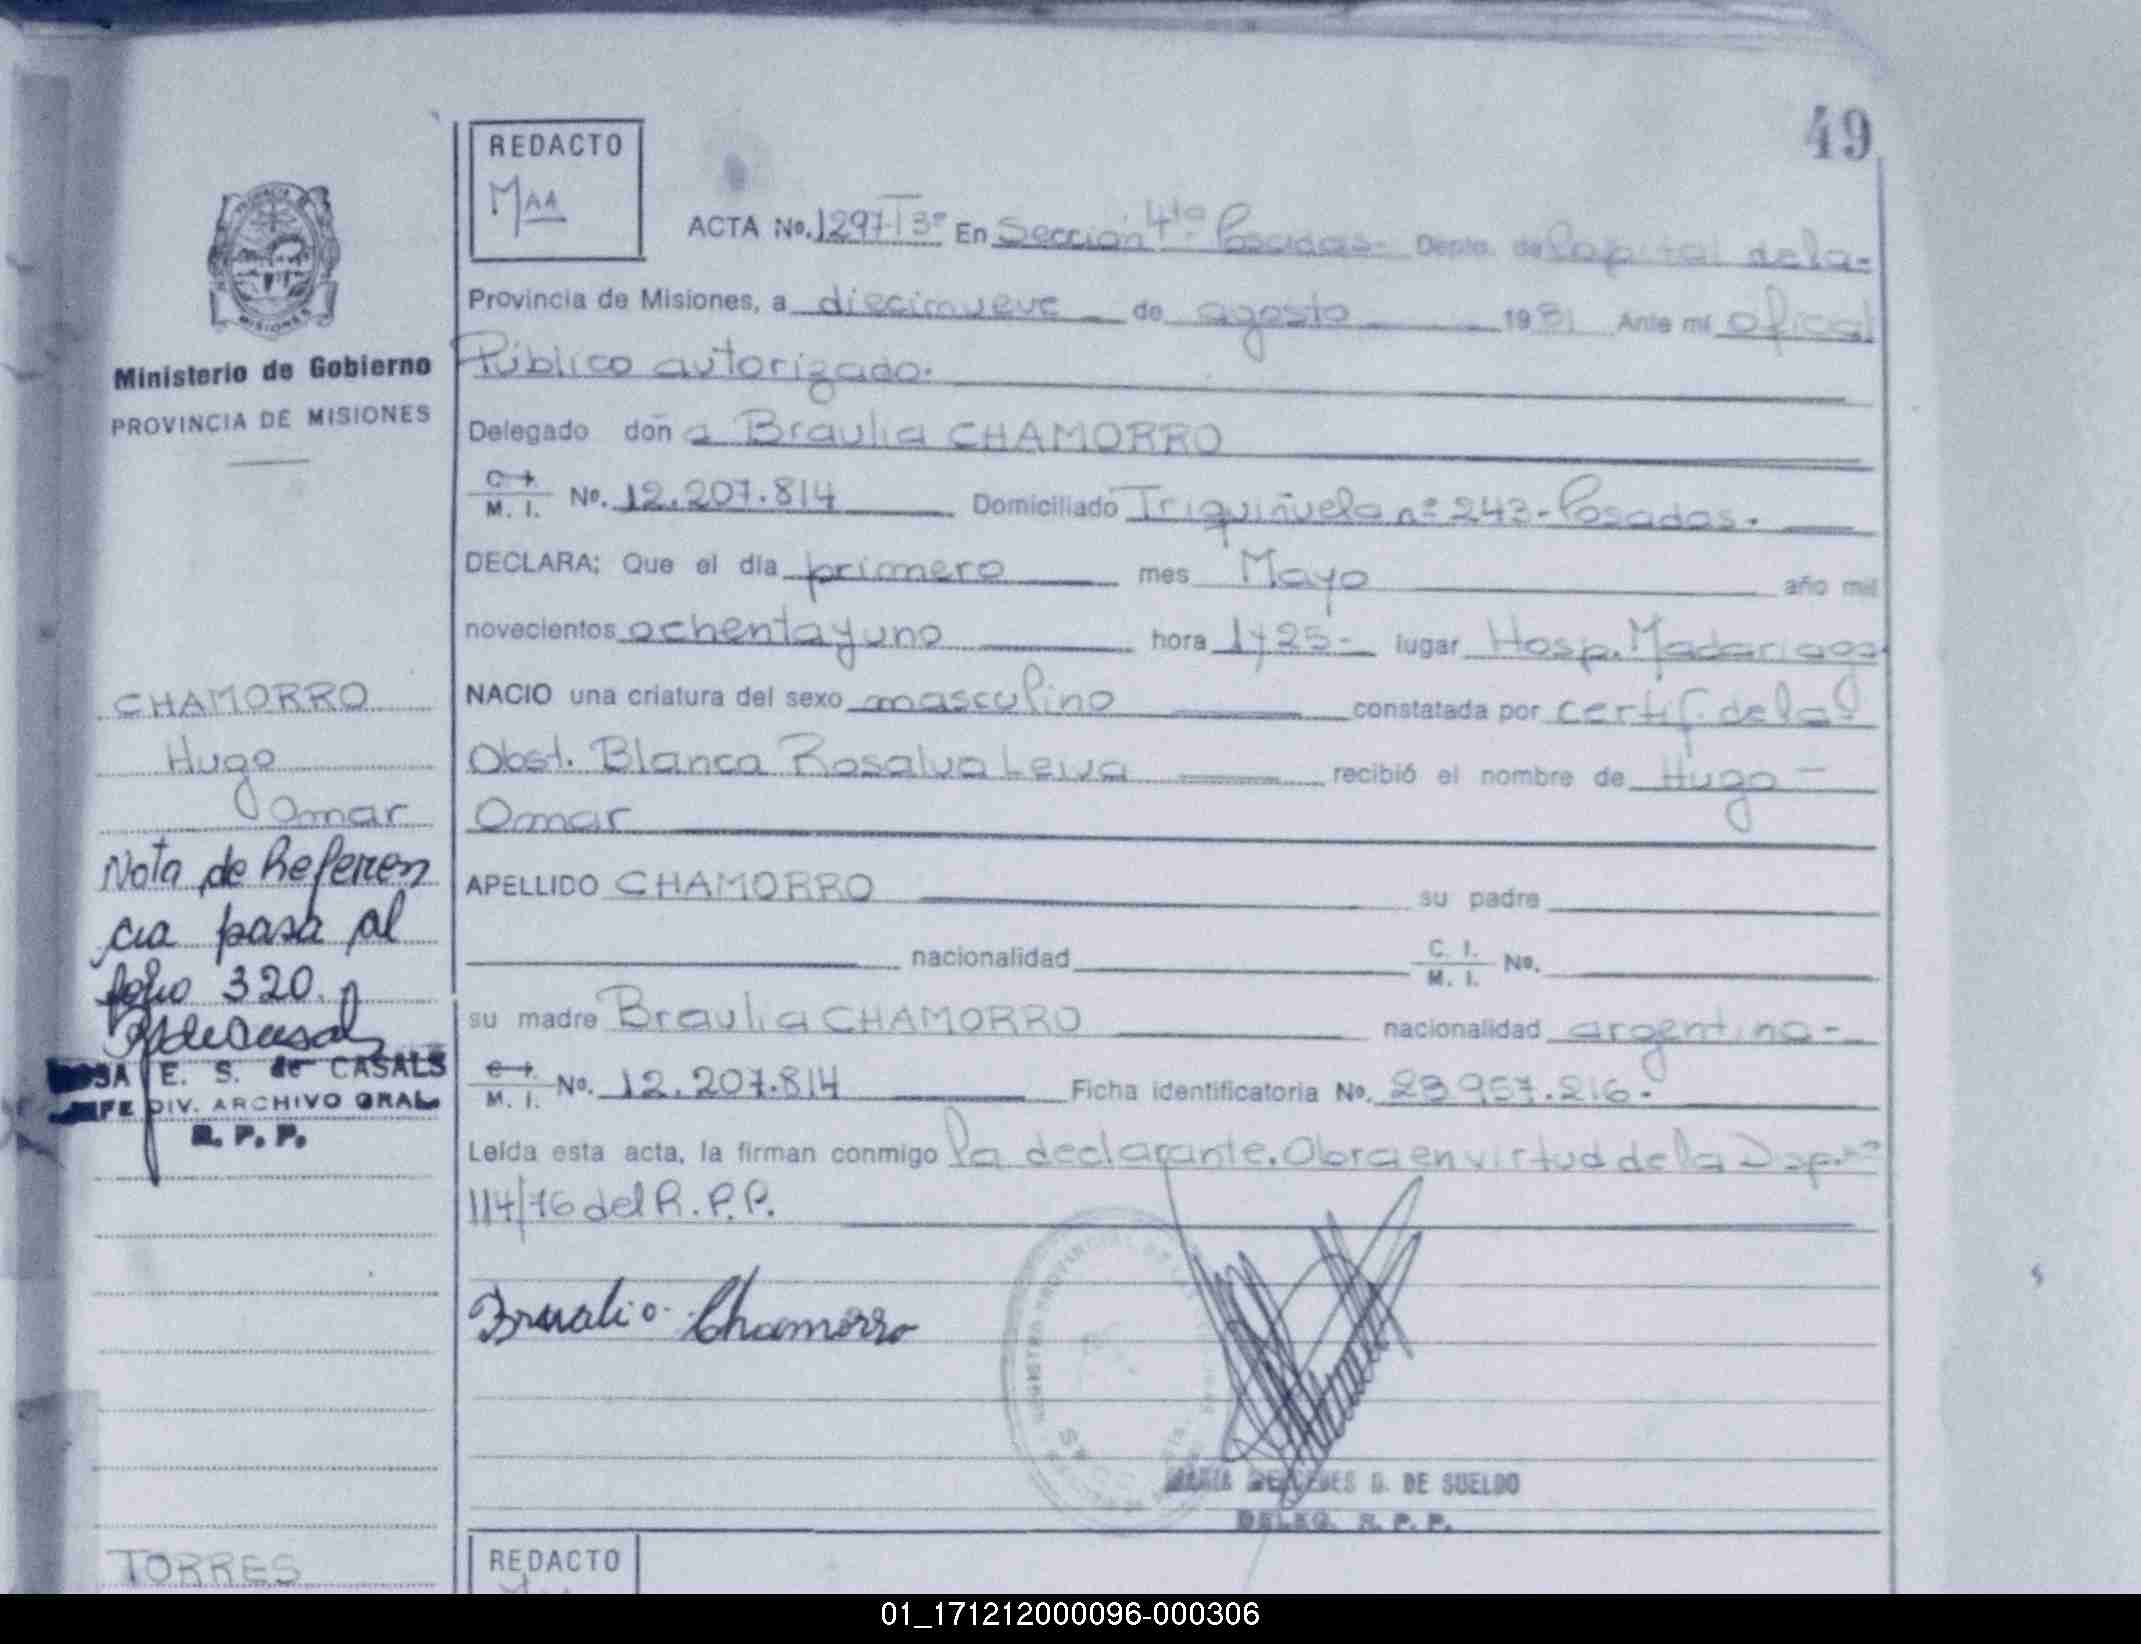 49
REDACTO
Maa
ACTA No. 1297 T 3º En Sección 4ta Posadas - Depto. de Capital de la-
Provincia de Misiones, a diecinueve de agosto 1981 Ante mí oficial
Público autorizado.
Delegado doña Braulia CHAMORRO
M. I. No. 12.207.814 Domiciliado Triquiñuela nº 243 - Posadas.
DECLARA; Que el día primero mes Mayo año mil
novecientos ochenta y uno hora 1725 - lugar Hosp. Madariaga
NACIO una criatura del sexo masculino constatada por certif. de la
Obst. Blanca Rosalva Leiva recibió el nombre de Hugo -
Omar
APELLIDO CHAMORRO su padre
nacionalidad C. I. M. I. No.
su madre Braulia CHAMORRO nacionalidad argentina -
M. I. No. 12.207.814 Ficha identificatoria No. 28 957.216.
Leída esta acta, la firman conmigo la declarante. Obra en virtud de la Disp. nº
114/76 del R.P.P.
Braulia Chamorro
MARIA MERCEDES D. DE SUELDO
DELEG. R. P. P.
Ministerio de Gobierno
PROVINCIA DE MISIONES
CHAMORRO
Hugo
Omar
Nota de Referen
cia pasa al
folio 320.
E. S. de CASALS
JEFE DIV. ARCHIVO GRAL
R. P. P.
TORRES
REDACTO
01_171212000096-000306